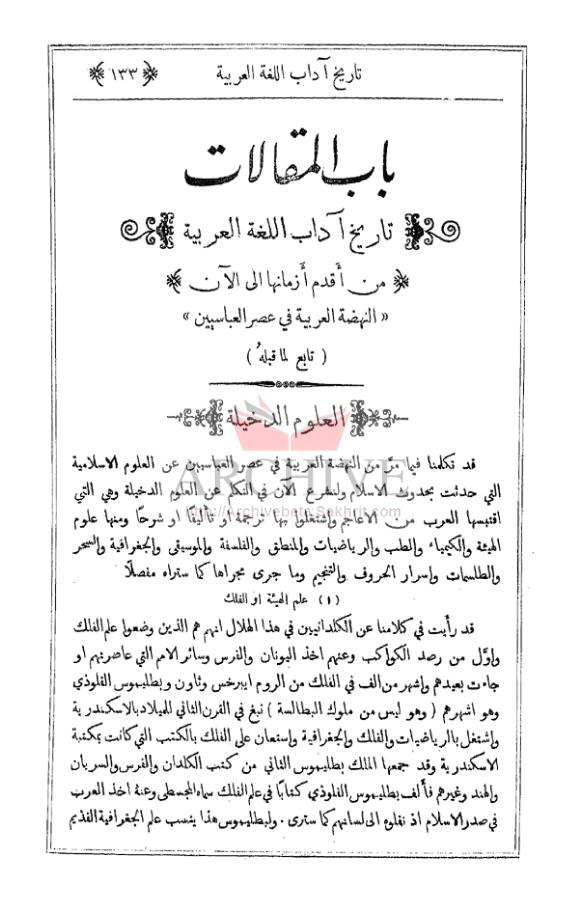 تاريخ آداب اللغة العربية
﴿ ١٣٣ ﴾
باب المقالات
تاريخ آداب اللغة العربية
من أقدم أزمانها الى الآن
« النهضة العربية في عصر العباسيين »
( تابع لما قبلهُ )
العلوم الدخيلة
ARCHIVE
http://Archivebeta.Sakhrit.com
قد تكلمنا فيما مرّ من النهضة العربية في عصر العباسيين عن العلوم الاسلامية
التي حدثت بحدوث الاسلام ولنشرع الآن في التكلم عن العلوم الدخيلة وهي التي
اقتبسها العرب من الأعاجم واشتغلوا بها ترجمة او تأليفًا او شرحًا ومنها علوم
الهيئة والكيمياء والطب والرياضيات والمنطق والفلسفة والموسيقى والجغرافية والسحر
والطلسمات واسرار الحروف والتنجيم وما جرى مجراها كما ستراه مفصلًا
(١) علم الهيئة او الفلك
قد رأيت في كلامنا عن الكلدانيين في هذا الهلال انهم هم الذين وضعوا علم الفلك
واوَّل من رصد الكواكب وعنهم اخذ اليونان والفرس وسائر الامم التي عاصرتهم او
جاءت بعيدهم واشهر من الف في الفلك من الروم ايبرخس وثاون وبطليموس القلوذي
وهو اشهرهم ( وهو ليس من ملوك البطالسة ) نبغ في القرن الثاني للميلاد بالاسكندرية
واشتغل بالرياضيات والفلك والجغرافية واستعان على الفلك بالكتب التي كانت بمكتبة
الاسكندرية وقد جمعها الملك بطليموس الثاني من كتب الكلدان والفرس والسريان
والهند وغيرهم فألف بطليموس القلوذي كتابًا في علم الفلك سماه المجسطى وعنهُ اخذ العرب
في صدر الاسلام اذ نقلوه الى لسانهم كما سترى . ولبطليموس هذا ينسب علم الجغرافية القديم